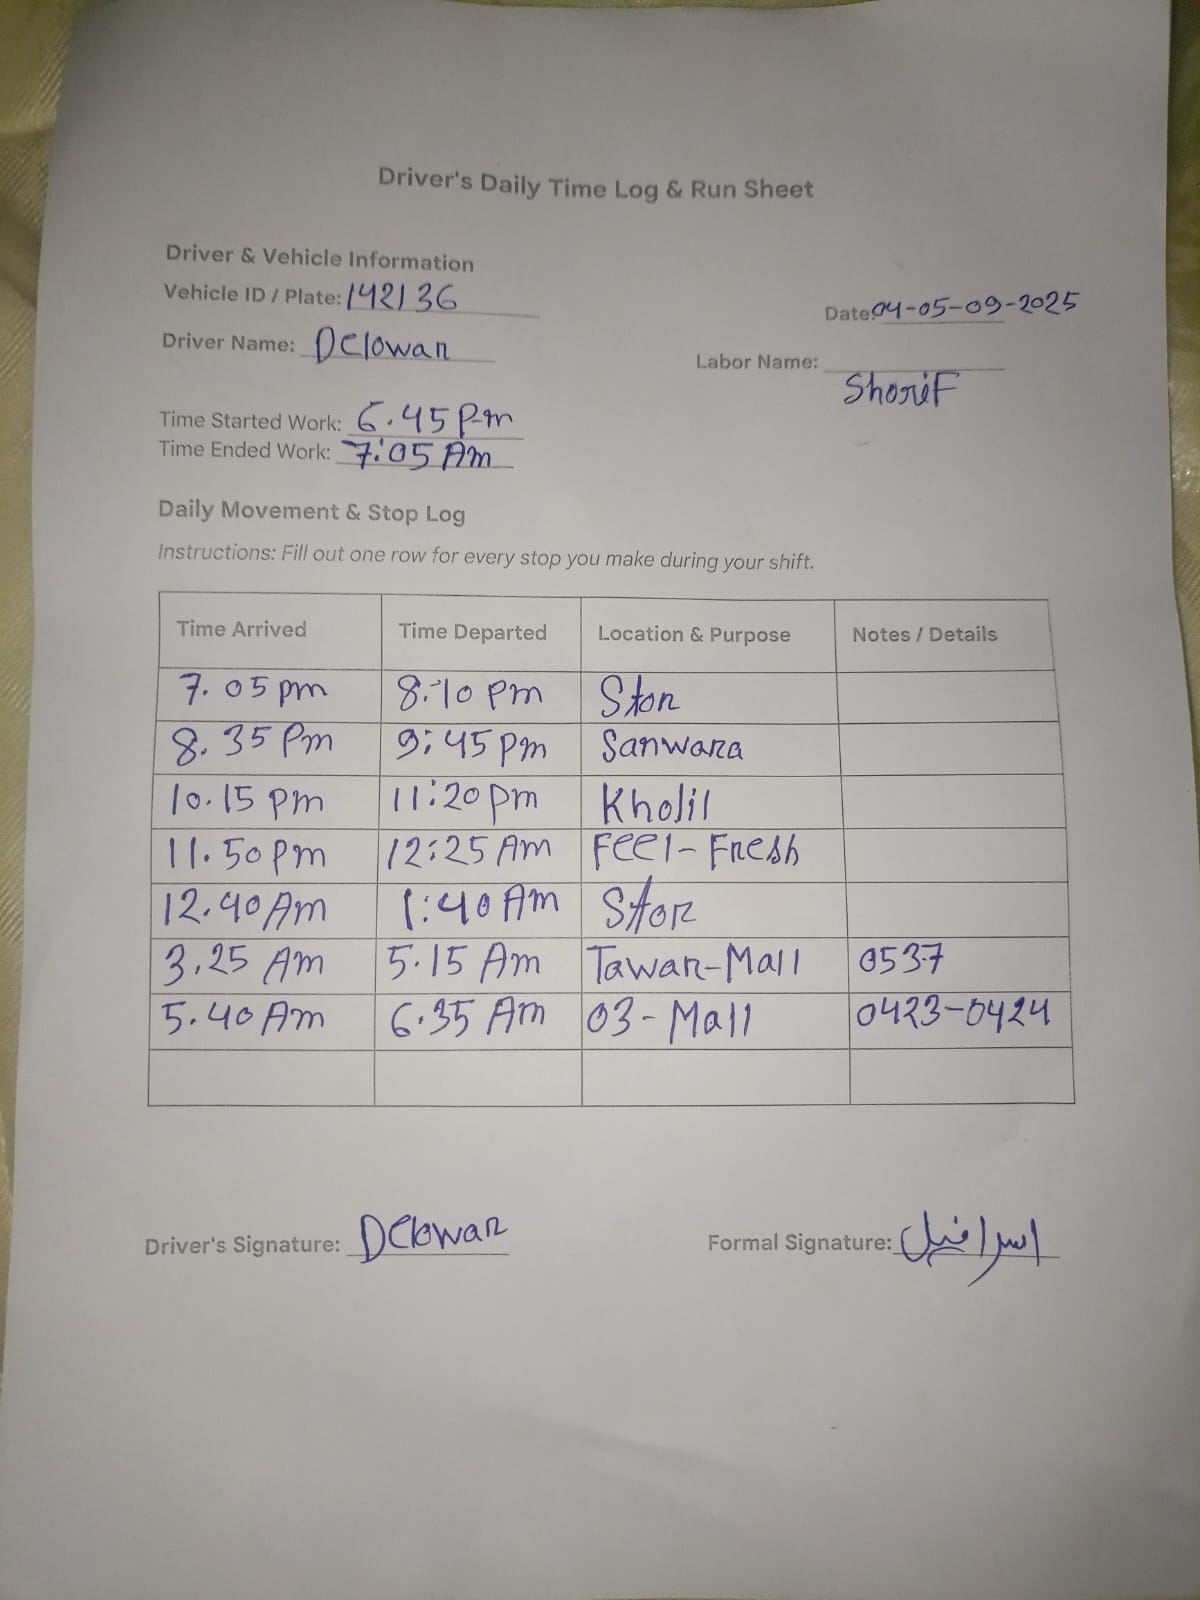 Driver's Daily Time Log & Run Sheet
Driver & Vehicle Information
Vehicle ID / Plate: 142136
Date: 04-05-09-2025
Driver Name: Delowar
Labor Name: Shorif
Time Started Work: 6.45 Pm
Time Ended Work: 7:05 Am
Daily Movement & Stop Log
Instructions: Fill out one row for every stop you make during your shift.
Time Arrived Time Departed Location & Purpose Notes / Details
7.05 pm 8:10 pm Stor
8.35 Pm 9:45 pm Sanwara
10.15 pm 11:20 pm Kholil
11.50 pm 12:25 Am Feel-Fresh
12.40 Am 1:40 Am Stor
3.25 Am 5.15 Am Tawar-Mall 0537
5.40 Am 6.35 Am 03-Mall 0423-0424
Driver's Signature: Delowar
Formal Signature: اسرافيل